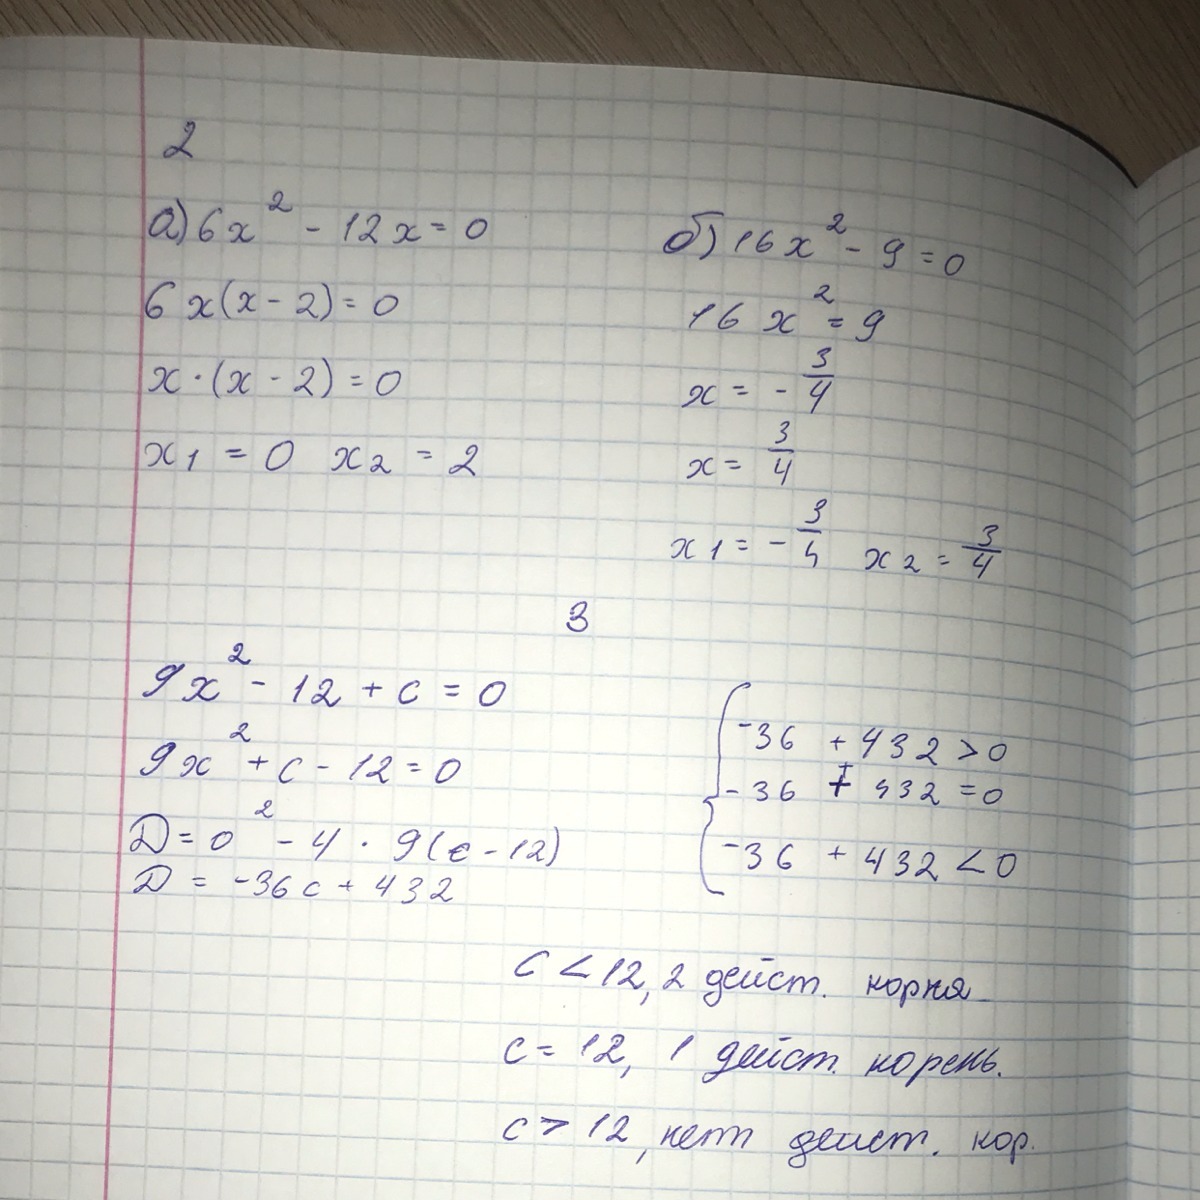 2
а) 6x² - 12x = 0
6x(x - 2) = 0
x · (x - 2) = 0
x₁ = 0 x₂ = 2
б) 16x² - 9 = 0
16x² = 9
x = - 3/4
x = 3/4
x₁ = - 3/4 x₂ = 3/4
3
9x² - 12 + c = 0
9x² + c - 12 = 0
D = 0² - 4 · 9(c - 12)
D = -36c + 432
-36 + 432 > 0
-36 + 432 = 0
-36 + 432 < 0
c < 12, 2 дейст. корня
c = 12, 1 дейст. корень.
c > 12, нет дейст. кор.